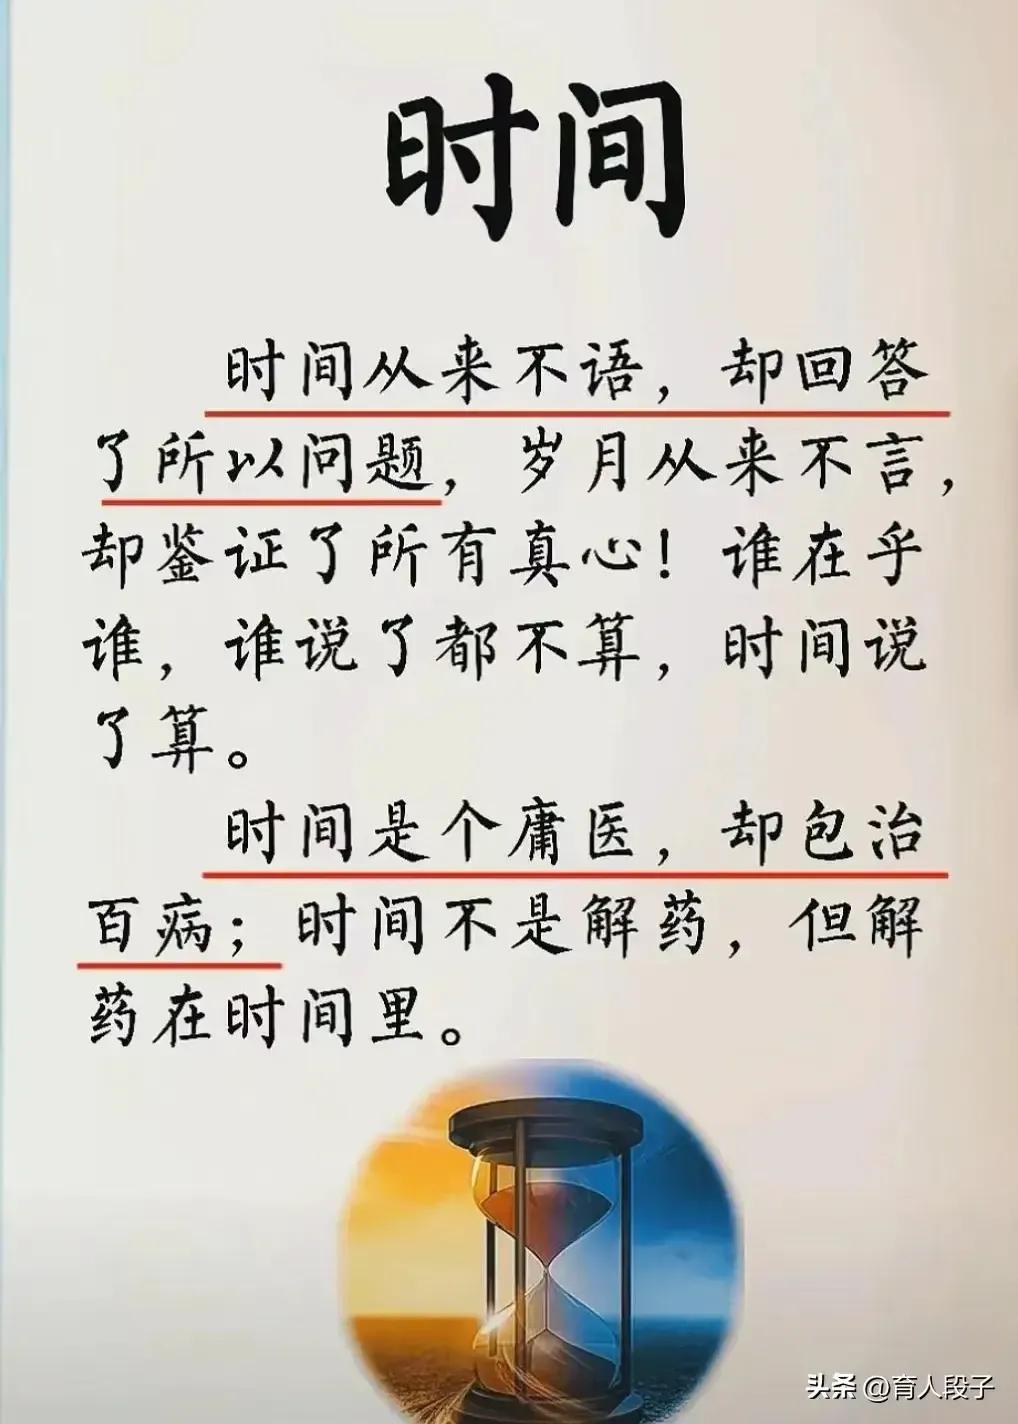 时间
时间从来不语，却回答
了所以问题，岁月从来不言，
却鉴证了所有真心！谁在乎
谁，谁说了都不算，时间说
了算。
时间是个庸医，却包治
百病；时间不是解药，但解
药在时间里。
头条 @育人段子